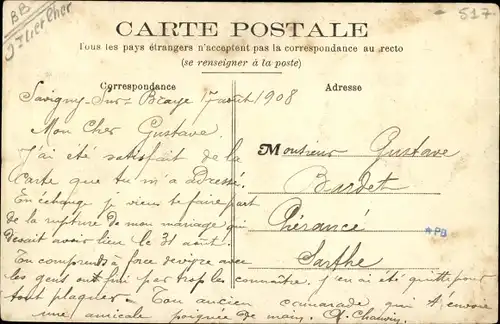 BB
Loir et Cher
517
CARTE POSTALE
Tous les pays étrangers n'acceptent pas la correspondance au recto
(se renseigner à la poste)
Correspondance
Adresse
Savigny-Sur-Braye 7 août 1908
Mon Cher Gustave.
J'ai été satisfait de la
Carte que tu m'a adressé.
En échange je viens te faire part
de la rupture de mon mariage qui
devait avoir lieu le 31 août.
Tu comprends à force de vivre avec
les gens ont fini par trop les connaître. j'en ai été quitte pour
tout plaquer. Ton ancien camarade qui t'envoie
une amicale poignée de main. A. Chauvin.
Monsieur Gustave
Bardet
Chérancé
Sarthe
*PB